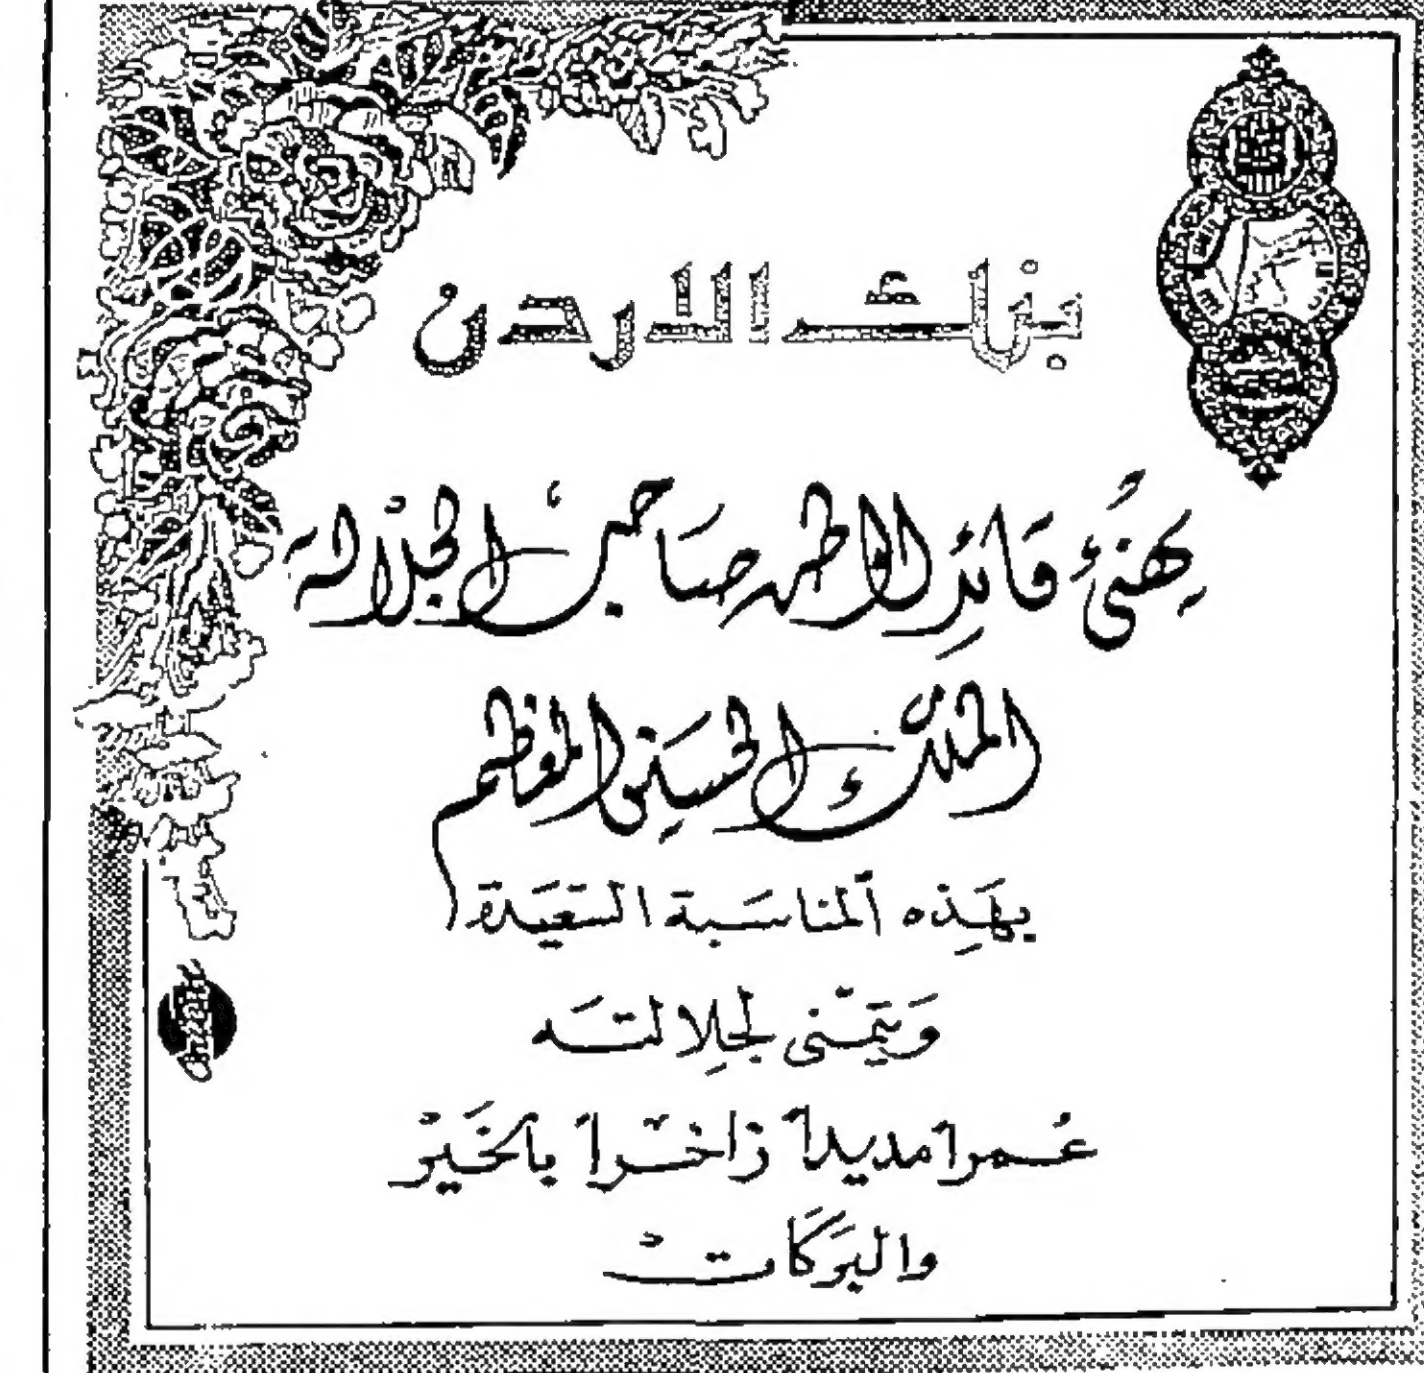 بنك الاردن
يهنئ قائد الوطن صاحب الجلالة
الملك الحسين المعظم
بهذه المناسبة السعيدة
ويتمنى لجلالته
عمراً مديداً زاخراً بالخير
والبركات